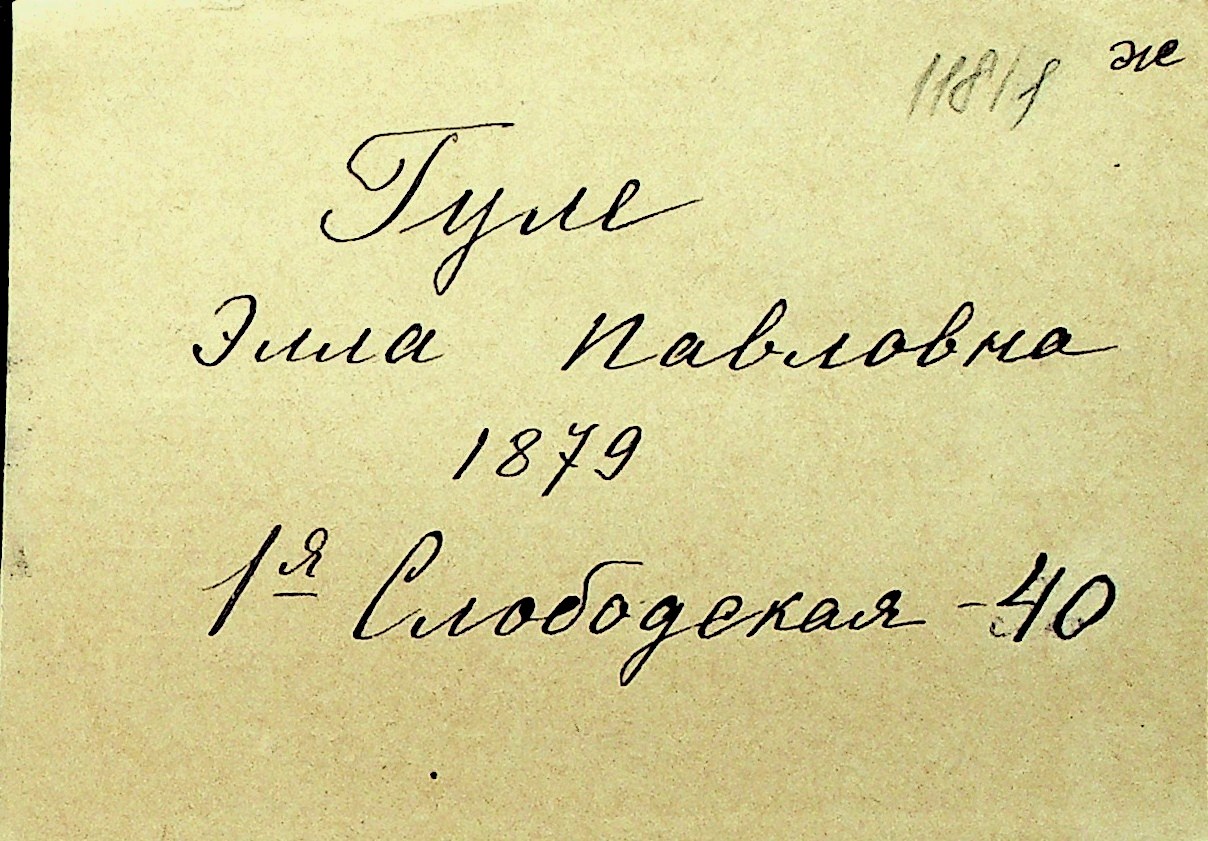 ж
Гуле
Элла Павловна
1879
1я Слободская - 40